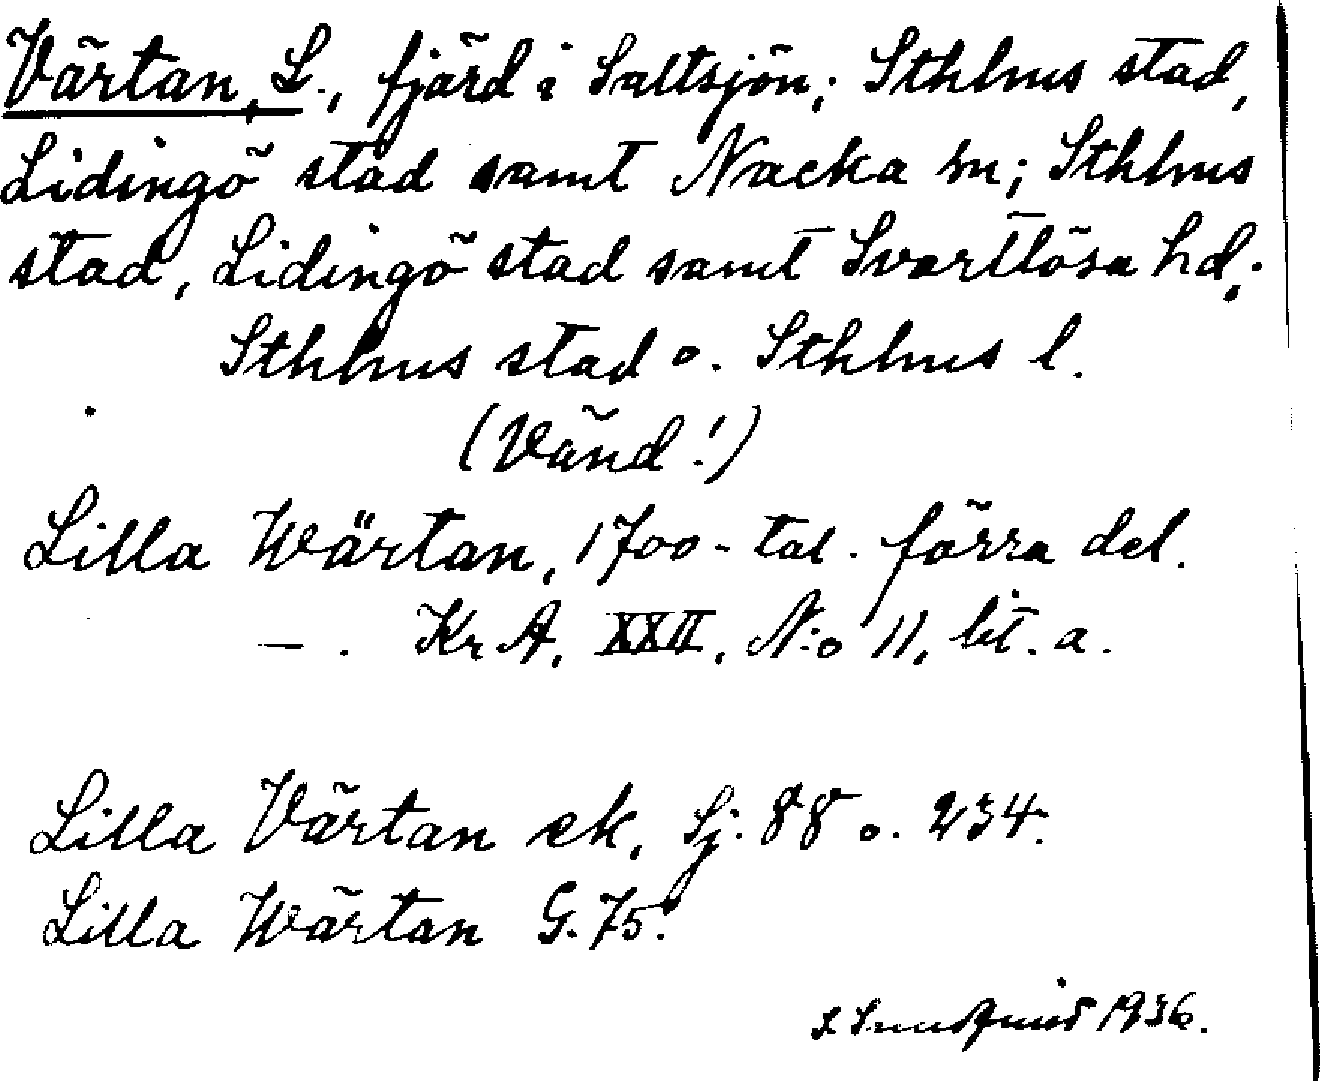 Värtan, L., fjärd i Saltsjön; Sthlms stad,
Lidingö stad samt Nacka sn; Sthlms
stad, Lidingö stad samt Svartlösa hd;
Sthlms stad o. Sthlms l.
(Vänd!)
Lilla Wärtan, 1700-tal. förra del.
— . Kr A, XXII, N:o 11, lit. a.
Lilla Värtan ek, Sj. 88 o. 234.
Lilla Wärtan G. 75.
1936.